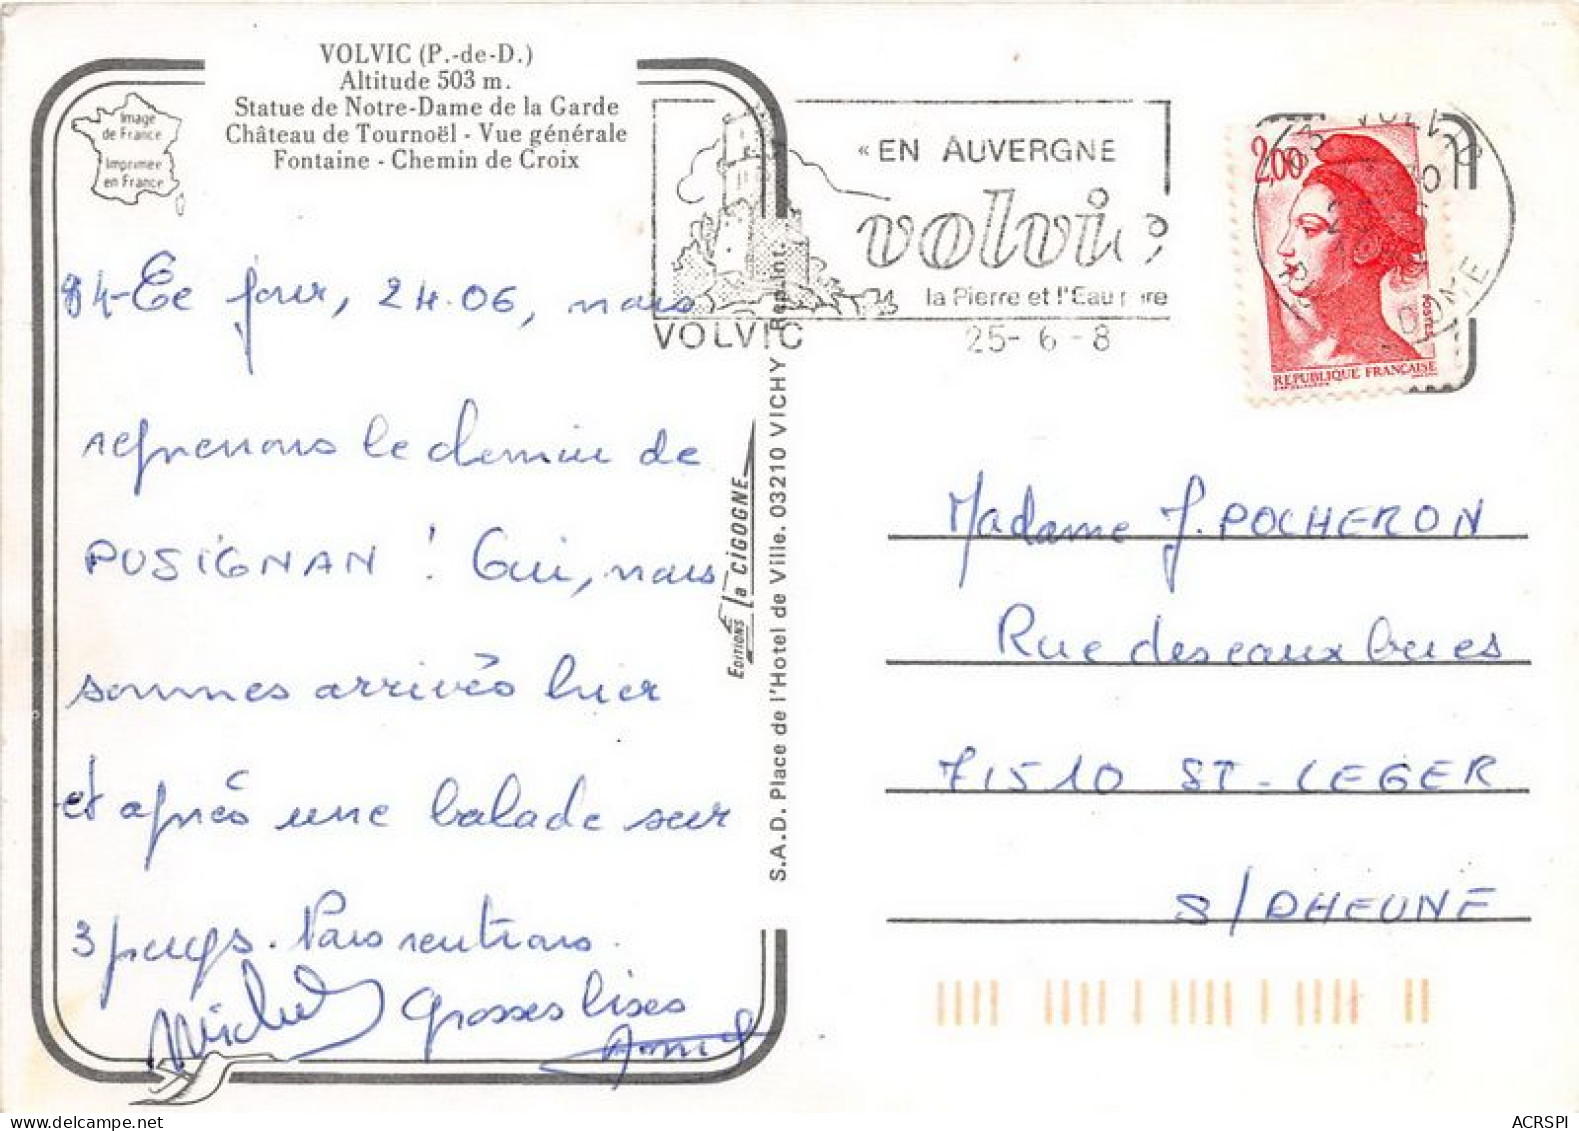 VOLVIC (P.-de-D.)
Altitude 503 m.
Statue de Notre-Dame de la Garde
Château de Tournoël - Vue générale
Fontaine - Chemin de Croix
Image
de France
Imprimée
en France
84-Ce jour, 24.06, nous
reprenons le chemin de
PUSIGNAN ! Oui, nous
sommes arrivés hier
et après une balade sur
3 puys. Nous rentrons.
Grosses bises
Michel
EDITIONS la CIGOGNE
S.A.D. Place de l'Hotel de Ville. 03210 VICHY Rep. int.
« EN AUVERGNE
volvic
la Pierre et l'Eau pure
VOLVIC
25- 6 - 8
VOLVIC
DOME
2,00
POSTES
REPUBLIQUE FRANÇAISE
Madame J. POCHERON
Rue des eaux bues
71510 ST-LEGER
S/DHEUNE
ACRSPI